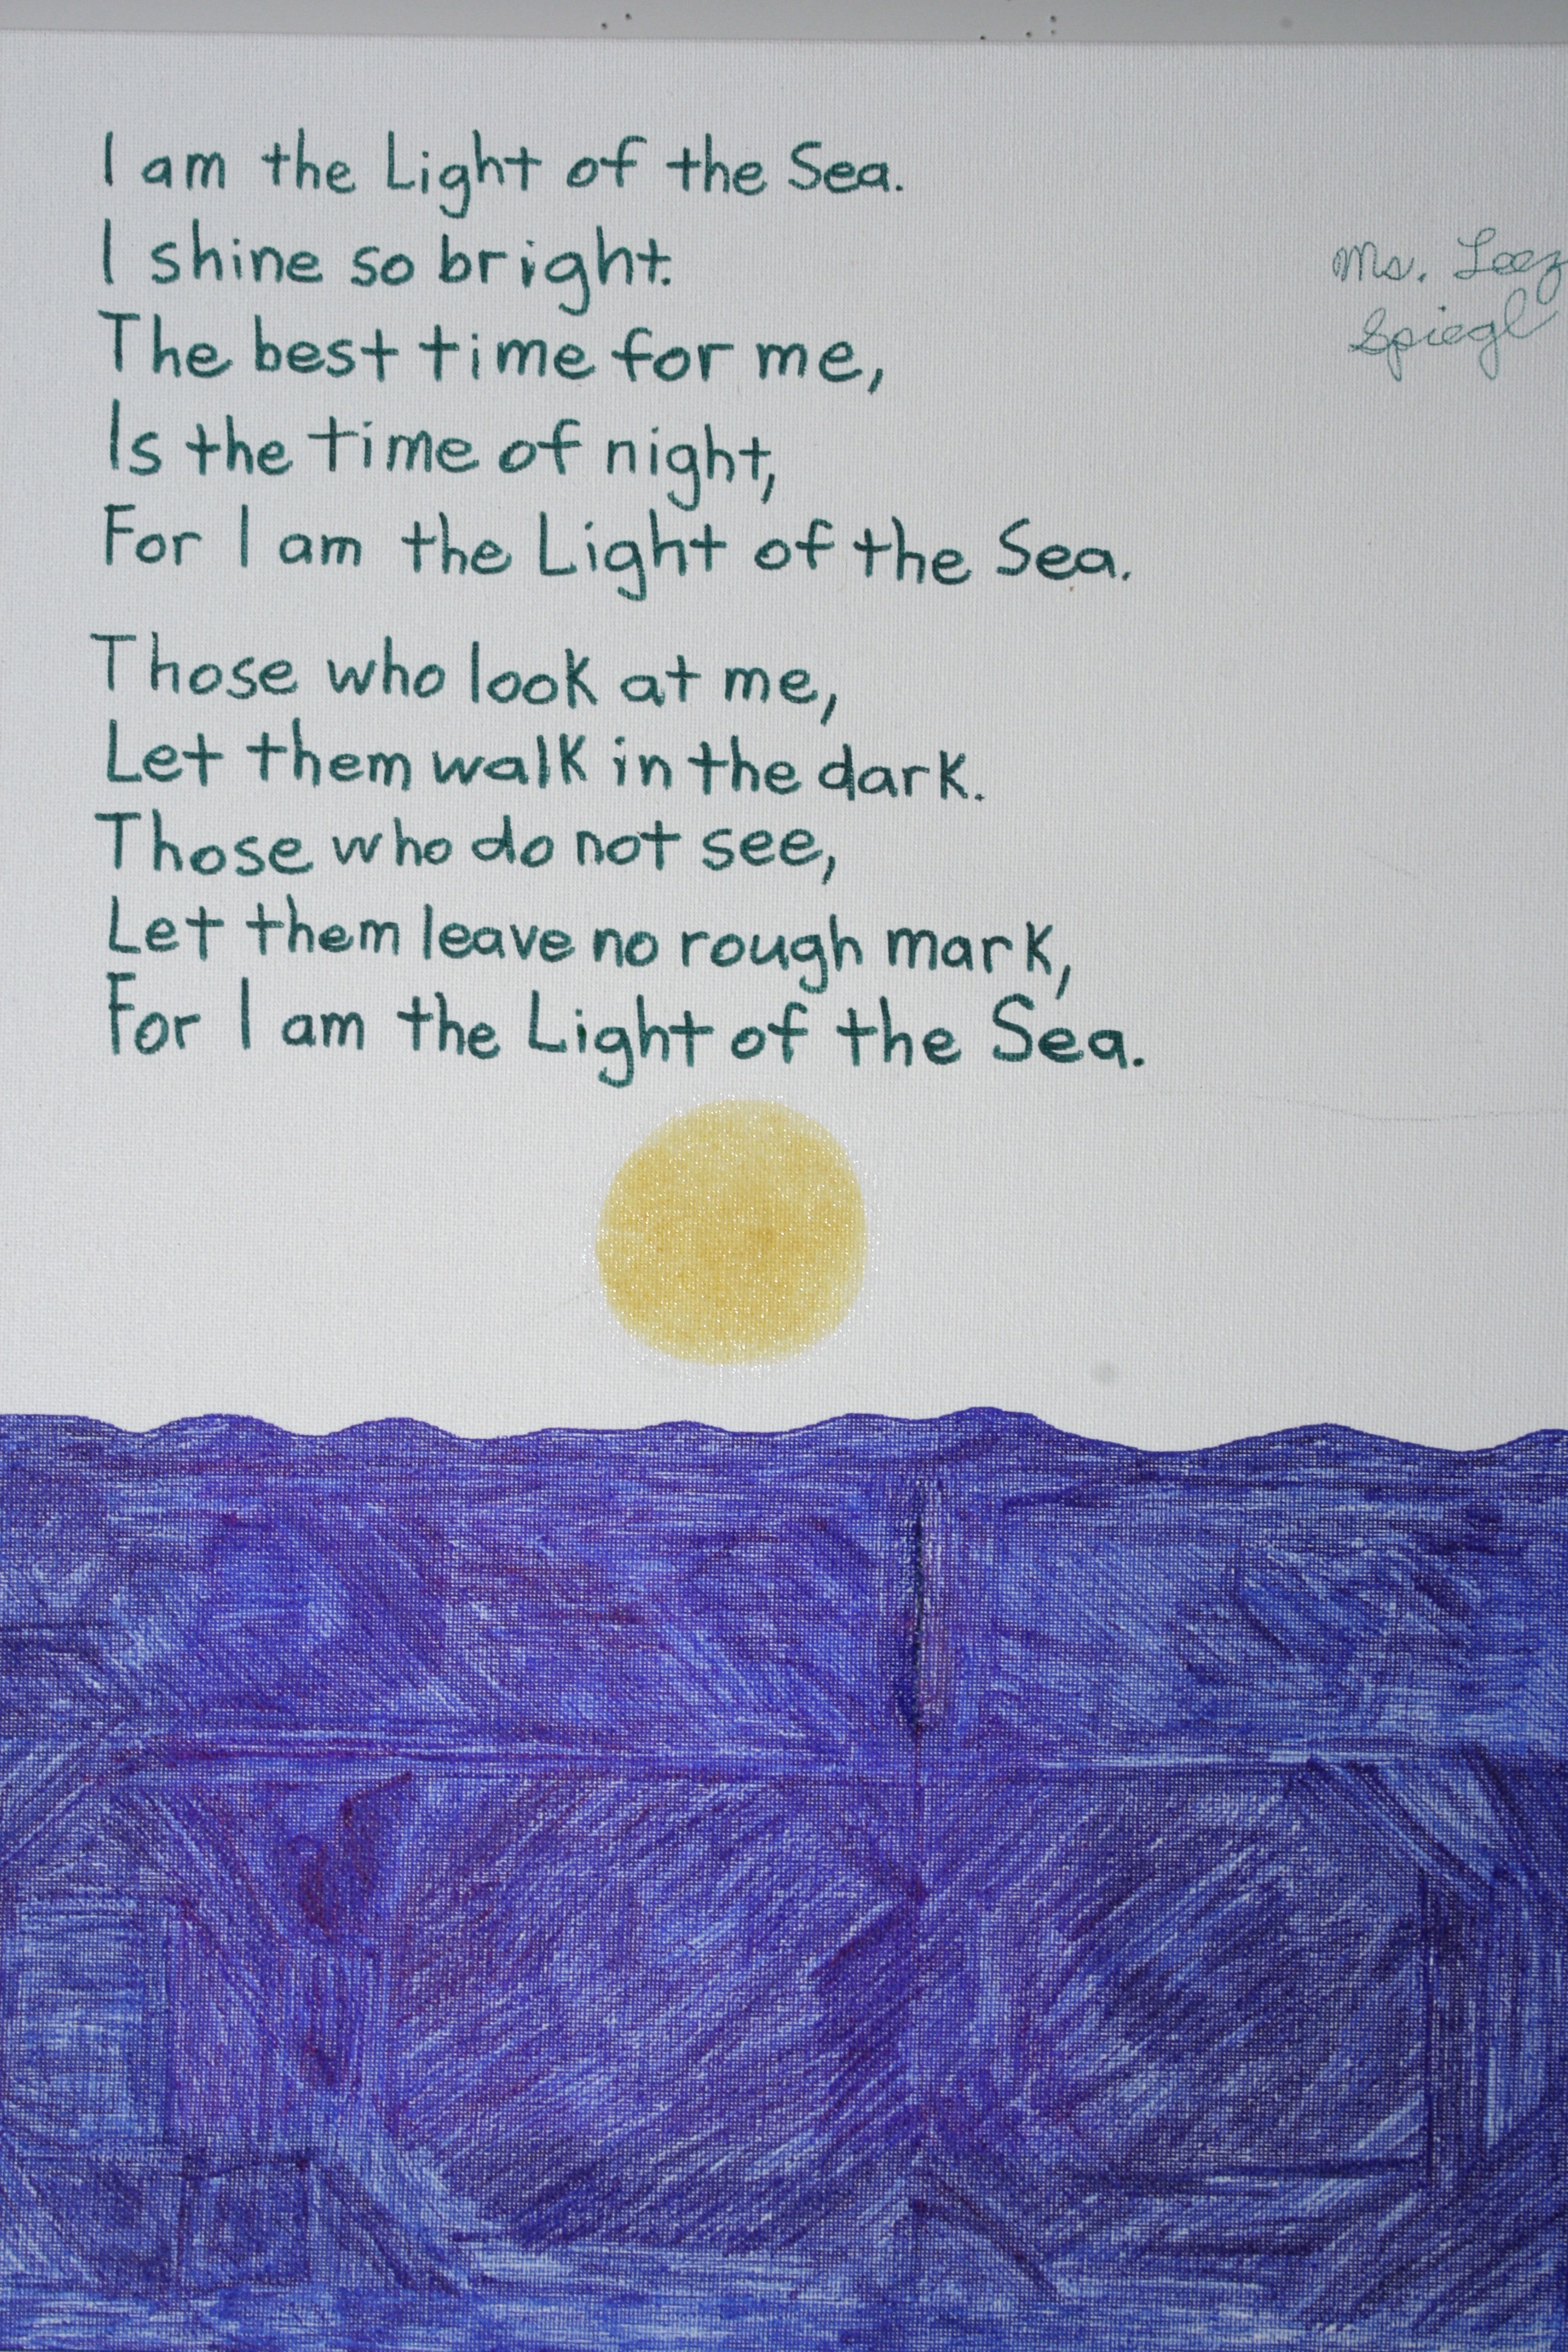 I am the Light of the Sea.
I shine so bright.
The best time for me,
Is the time of night,
For I am the Light of the Sea.
Those who look at me,
Let them walk in the dark.
Those who do not see,
Let them leave no rough mark,
For I am the Light of the Sea.
Ms.
Spiegl